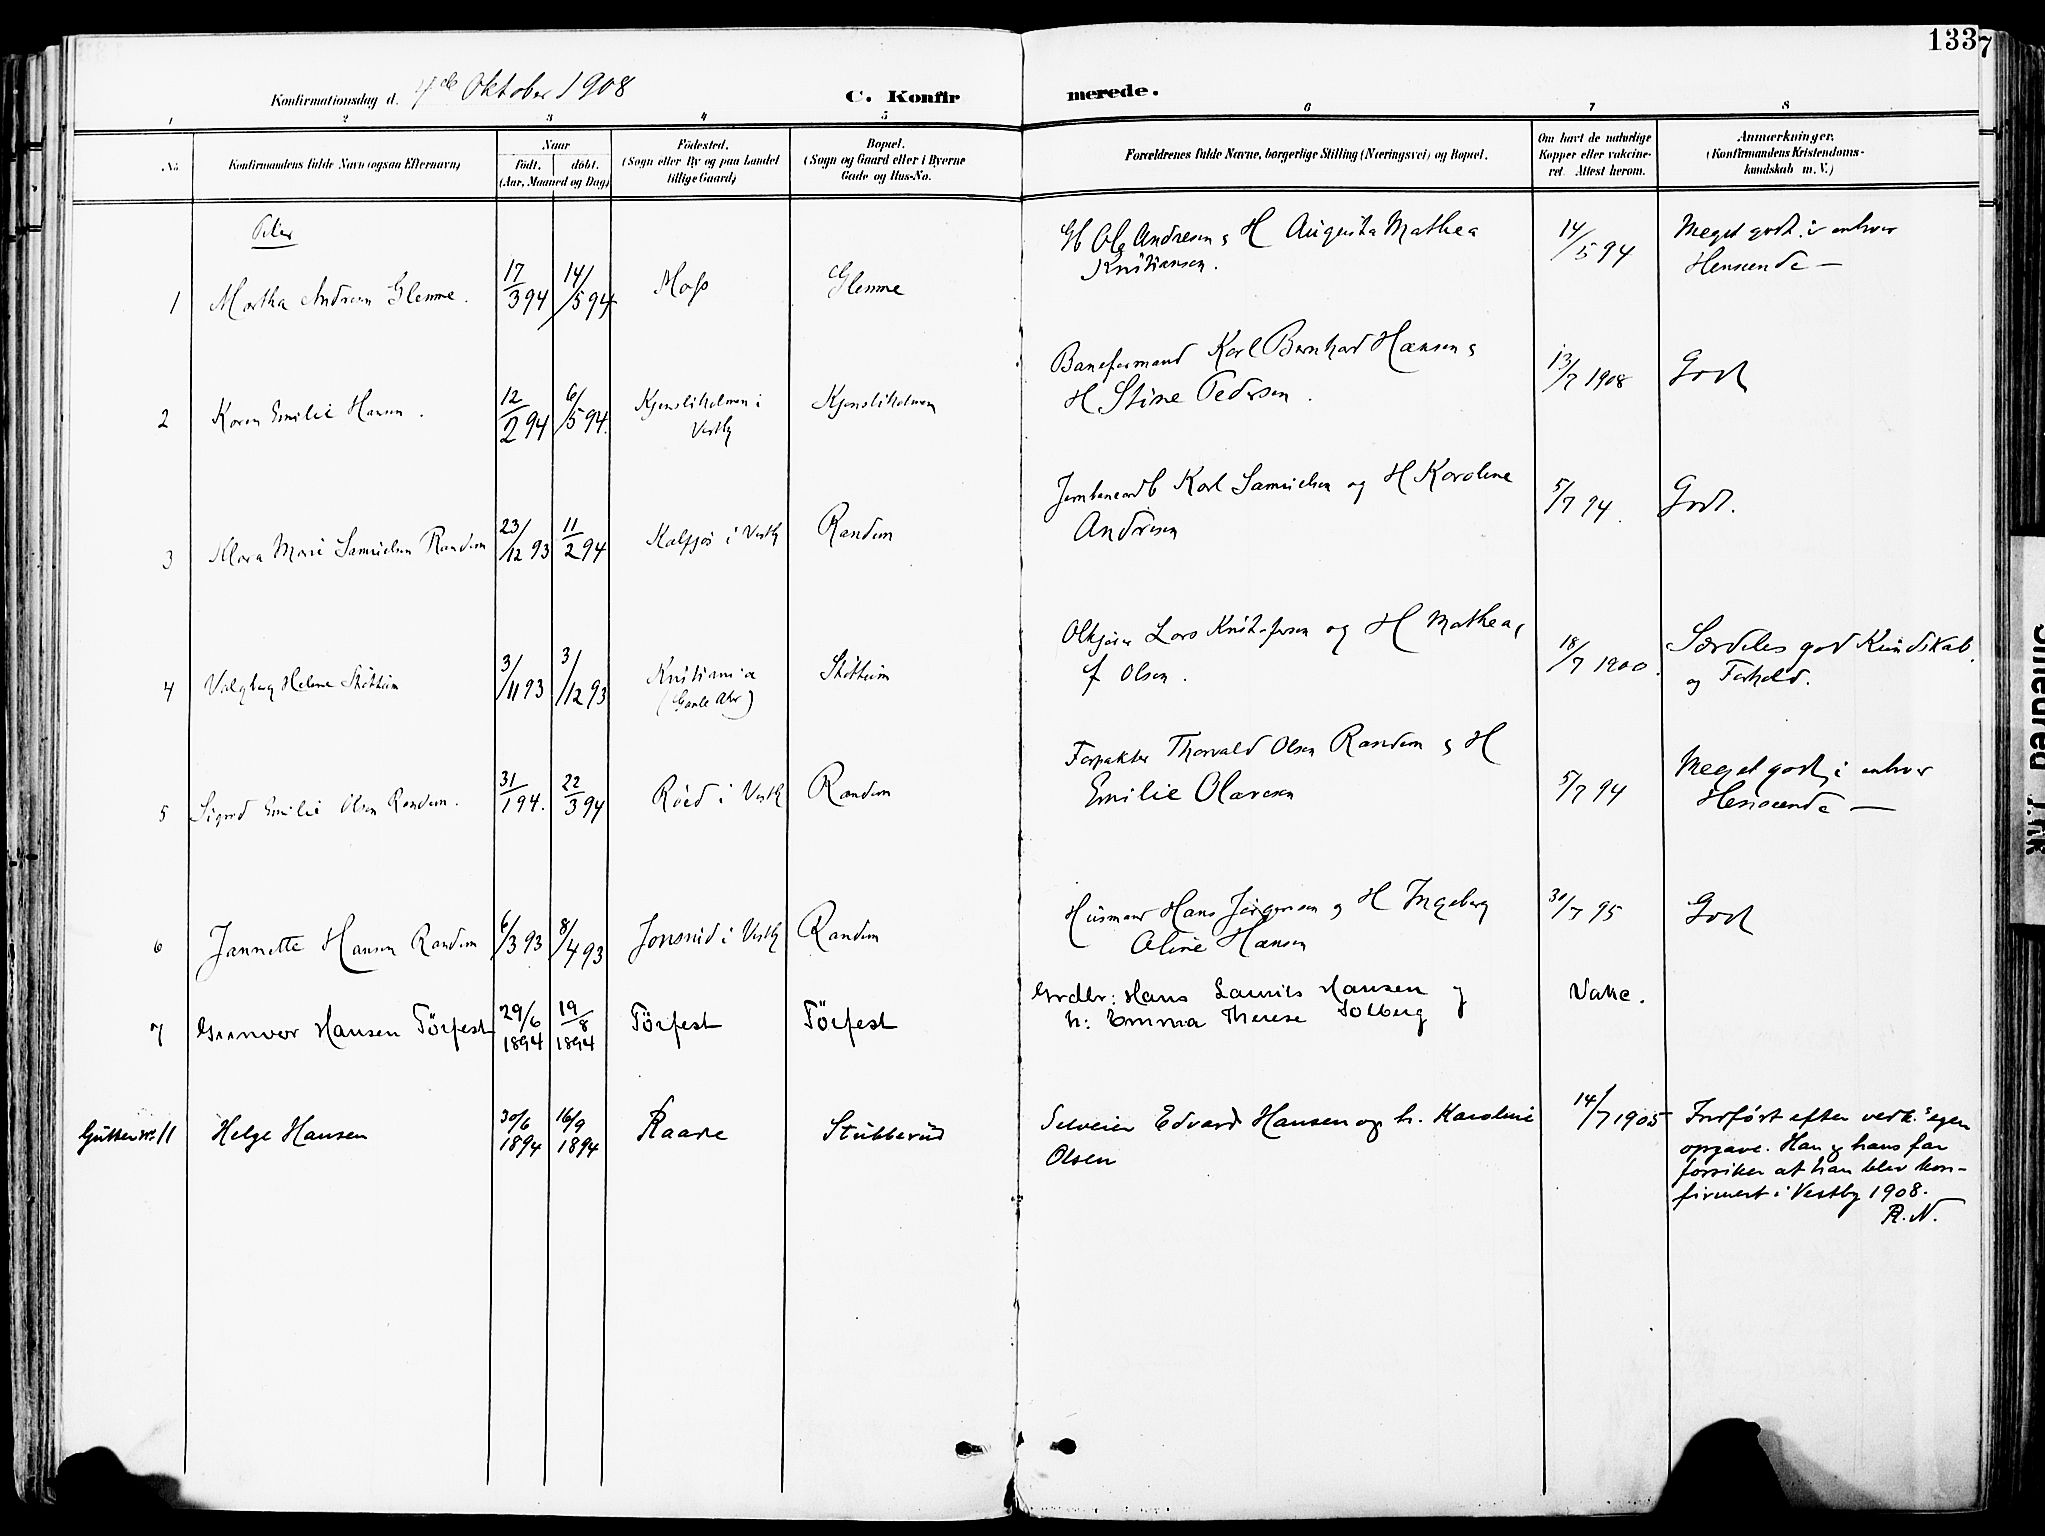 133
7
Konfirmationsdag d. 4de Oktober 1908
C. Konfir merede.
1 2 3 4 5 6 7 8
No. Konfirmandens fulde Navn (ogsaa Efternavn)
Naar
født. døbt.
(Aar, Maaned og Dag)
Fødested.
(Sogn eller By og paa Landet
tillige Gaard)
Bopæl.
(Sogn og Gaard eller i Byerne
Gade og Hus-No.
Forældrenes fulde Navne, borgerlige Stilling (Næringsvei) og Bopæl.
Om havt de naturlige
Kopper eller vakcine-
ret. Attest herom.
Anmærkninger.
(Konfirmandens Kristendoms-
kundskab m. V.)
Piker
1 Martha Andresen Glemme. 17/3 94 14/5 94 Moss Glemme
Ole Andresen og H Augusta Mathea
Kristiansen.
14/5 94
Meget godt i enhver
Henseende —
2 Karen Emilie Hansen. 12/2 94 6/5 94. Kjensliholmen i
Vestby
Kjensliholmen
Baneformand Karl Bernhard Hansen og
H Stine Pedersen.
13/7 1908 Godt
3 Marie Samuelsen Randem 23/12 93 11/2 94 i Vestby Randem
Karl Samuelsen og H Karoline
Andresen
5/7 94. Godt.
4 Valgborg Helene 3/11 93 3/12 93 Kristiania
(Gamle Aker)
Lars Kristofersen og H Mathea,
f Olsen.
18/7 1900.
Særdeles god Kundskab
og Forhold.
5 Sigrid Emilie Olsen Randem. 31/1 94. 22/3 94 Röed i Vestby Randem
Forpakter Thorvald Olsen Randem og H
Emilie Olavesen
5/7 94
Meget godt, i enhver
Henseende —
6 Jannette Hansen Randem 6/3 93 8/4 93 Jonsrud i Vestby Randem
Husmand Hans Jørgensen og H Ingeborg
Oline Hansen
30/7 95 Godt
7 Gunvor Hansen Törfest 29/6
1894
19/8
1894
Törfest Törfest
Grdbr: Hans Laurits Hansen og
h: Emma Therese Solberg
Vakc.
Gutter nr. 11 Helge Hansen 30/6
1894
16/9
1894
Raade Stubberud
Selveier Edvard Hansen og h. Karoline
Olsen
14/7 1905
Indført efter vedk.s egen
opgave. Han og hans far
forsikrer at han blev kon-
firmert i Vestby 1908.
R. N.